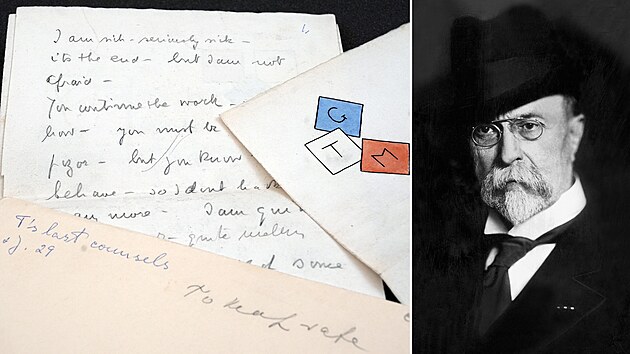 1,
I am sick - seriously sick -
its the end - but I am not
afraid -
You continue the work -
how - you must be
pozor - but you know
behave - so I dont
more - I am
quite
some
G
T M
T's last counsels
J. 29
To keep safe